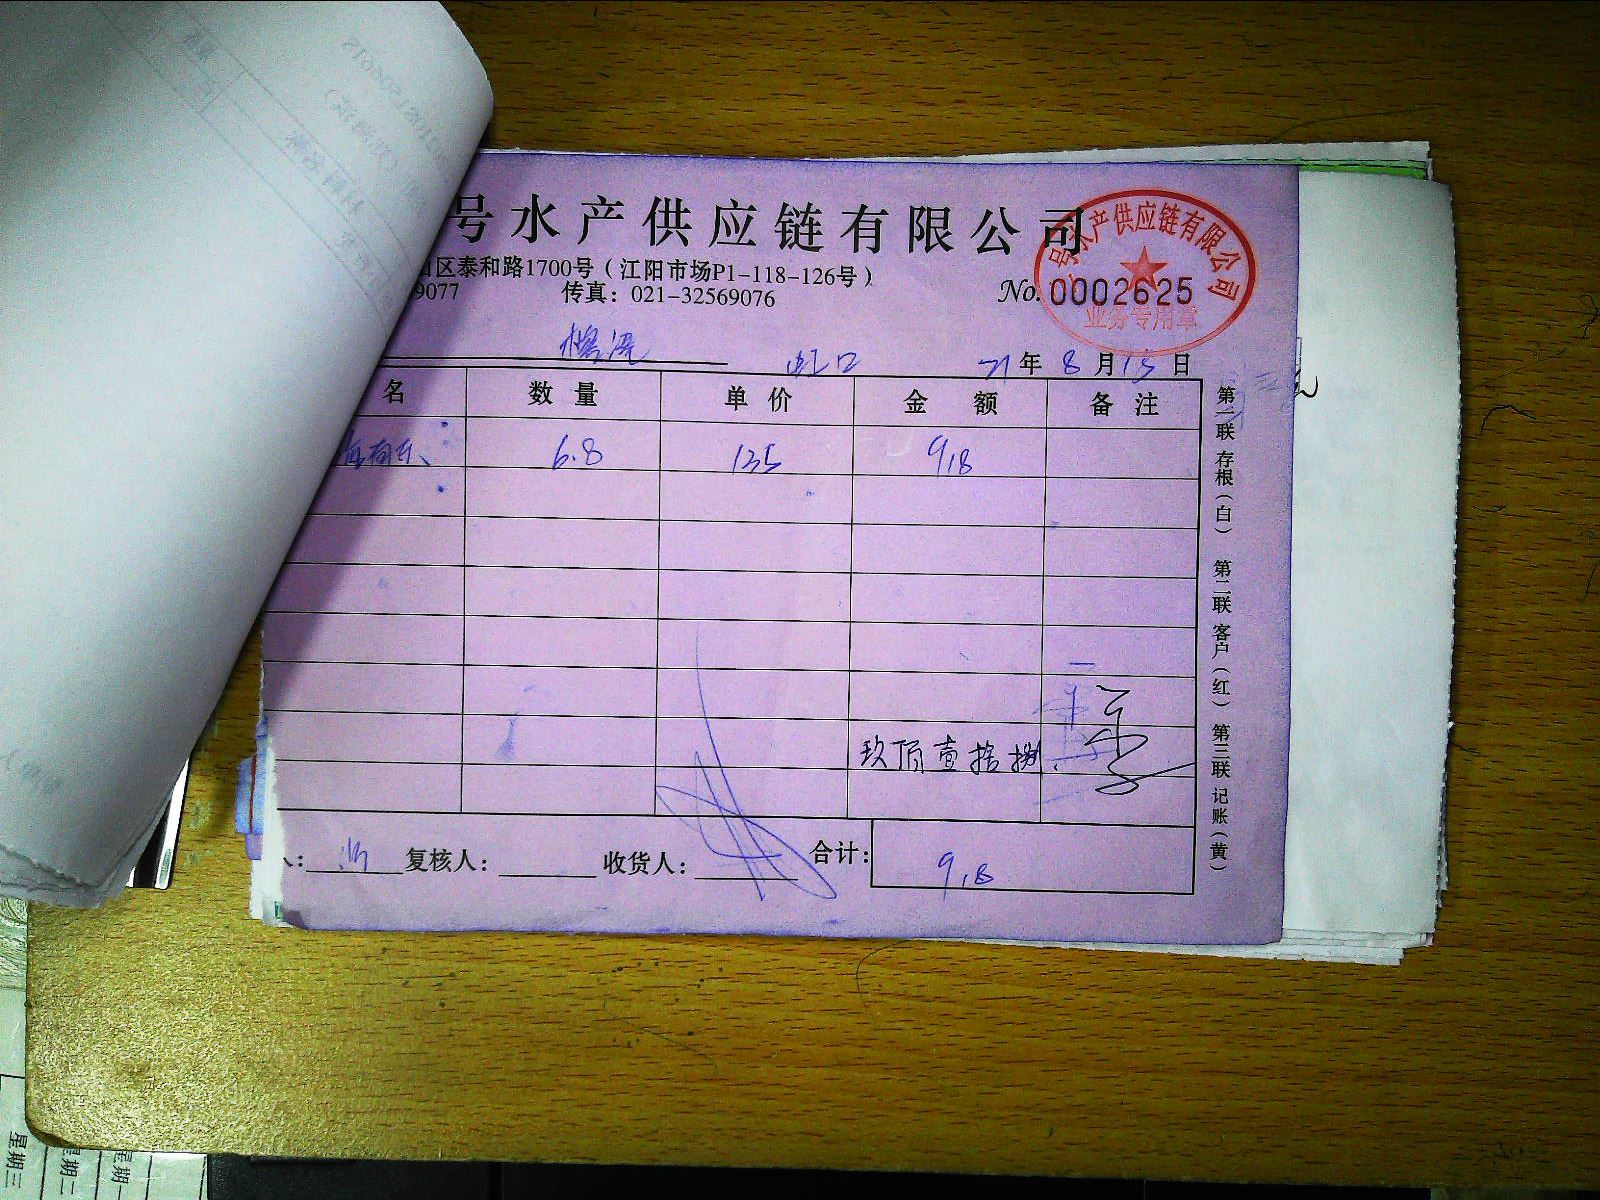 号水产供应链有限公司
区泰和路1700号（江阳市场P1-118-126号）
9077 传真：021-32569076
No. 0002625
号水产供应链有限公司
业务专用章
虹口 21年8月15日
名 数量 单价 金额 备注
6.8 135 918
玖佰壹拾捌
人： 复核人： 收货人： 合计： 918
第一联 存根（白） 第二联 客户（红） 第三联 记账（黄）
星期三 星期二 星期一